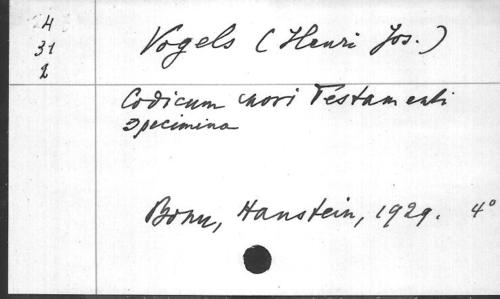 4
31
2
Vogels (Henri Jos.)
Codicum novi Testamenti
specimina
Bonn, Hanstein, 1929. 4°